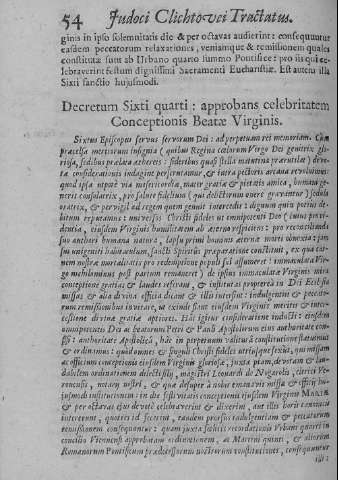 54 Judoci Clichtovei Tractatus.
ginis in ipso solemnitatis die & per octavas audierint: consequuntur
easdem peccatorum relaxationes, veniamque & remissionem quales
constitutæ sunt ab Urbano quarto summo Pontifice: pro iis qui ce-
lebraverint festum dignissimi Sacramenti Eucharistiæ. Est autem illa
Sixti sanctio hujusmodi.
Decretum Sixti quarti: approbans celebritatem
Conceptionis Beatæ Virginis.
Sixtus Episcopus servus servorum Dei: ad perpetuam rei memoriam. Cum
præcelsa meritorum insignia (quibus Regina cælorum Virgo Dei genitrix glo-
riosa, sedibus prælata æthereis: sideribus quasi stella matutina prærutilat) devo-
tæ considerationis indagine perscrutamur, & intra pectoris arcana revolvimus:
quod ipsa utpote via misericordiæ, mater gratiæ & pietatis amica, humani ge-
neris consolatrix, pro salute fidelium (qui delictorum onere gravantur) sedula
oratrix, & pervigil ad regem quem genuit intercedit: dignum quin potius de-
bitum reputamus: universos Christi fideles ut omnipotenti Deo (cujus provi-
dentia, ejusdem Virginis humilitatem ab æterno respiciens: pro reconcilianda
suo authori humana natura, lapsu primi hominis æternæ morti obnoxia: eam
sui unigeniti habitaculum, sancti Spiritus præparatione constituit, ex qua car-
nem nostræ mortalitatis pro redemptione populi sui assumeret: immaculata Vir-
go nihilominus post partum remaneret) de ipsius immaculatæ Virginis mira
conceptione gratias & laudes referant, & instituta propterea in Dei Ecclesia
missas & alia divina officia dicant & illis intersint: indulgentiis & peccato-
rum remissionibus invitare, ut exinde fiant ejusdem Virginis meritis & inter-
cessione divinæ gratiæ aptiores. Hac igitur consideratione inducti: ejusdem
omnipotentis Dei ac beatorum Petri & Pauli Apostolorum ejus authoritate confi-
si: authoritate Apostolica, hac in perpetuum valitura constitutione statuimus
& ordinamus: quod omnes & singuli Christi fideles utriusque sexus, qui missam
ac officium conceptionis ejusdem Virginis gloriosæ, juxta piam, devotam & lau-
dabilem ordinationem dilecti filii, magistri Leonardi de Nogarolis, clerici Ve-
ronensis, notarii nostri, & quæ desuper a nobis emanavit missæ & officii hu-
jusmodi institutionem: in die festivitatis conceptionis ejusdem Virginis MARIÆ
& per octavas ejus devote celebraverint & dixerint, aut illis horis canonicis
interfuerint, quoties id fecerint, eandem prorsus indulgentiam & peccatorum
remissionem consequantur: quam juxta felicis recordationis Urbani quarti in
concilio Viennensi approbatam ordinationem, ac Martini quinti, & aliorum
Romanorum Pontificum prædecessorum nostrorum constitutiones, consequuntur